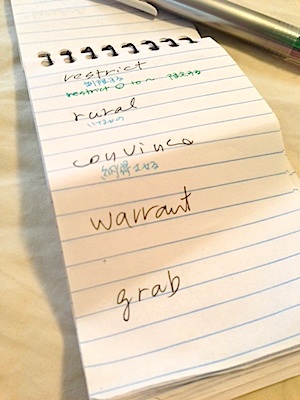 restrict
制限する
restrict O to ~ 限定する
rural
いなかの
convince
納得させる
warrant
grab